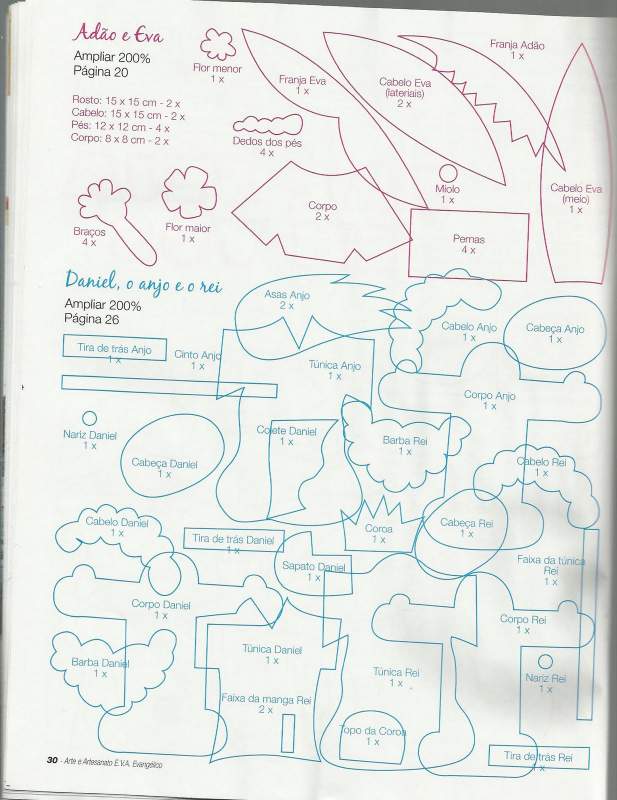 Adão e Eva
Ampliar 200%
Página 20
Rosto: 15 x 15 cm - 2 x
Cabelo: 15 x 15 cm - 2 x
Pés: 12 x 12 cm - 4 x
Corpo: 8 x 8 cm - 2 x
Flor menor
1 x
Franja Eva
1 x
Cabelo Eva
(lateriais)
2 x
Franja Adão
1 x
Dedos dos pés
4 x
Miolo
1 x
Cabelo Eva
(meio)
1 x
Braços
4 x
Flor maior
1 x
Corpo
2 x
Pernas
4 x
Daniel, o anjo e o rei
Ampliar 200%
Página 26
Asas Anjo
2 x
Cabelo Anjo
1 x
Cabeça Anjo
1 x
Tira de trás Anjo
1 x
Cinto Anjo
1 x
Túnica Anjo
1 x
Corpo Anjo
1 x
Nariz Daniel
1 x
Cabeça Daniel
1 x
Colete Daniel
1 x
Barba Rei
1 x
Cabelo Rei
1 x
Cabelo Daniel
1 x
Tira de trás Daniel
1 x
Coroa
1 x
Cabeça Rei
1 x
Sapato Daniel
1 x
Faixa da túnica
Rei
1 x
Corpo Daniel
1 x
Corpo Rei
1 x
Barba Daniel
1 x
Túnica Daniel
1 x
Túnica Rei
1 x
Nariz Rei
1 x
Faixa da manga Rei
2 x
Topo da Coroa
1 x
Tira de trás Rei
1 x
30 - Arte e Artesanato E.V.A. Evangélico